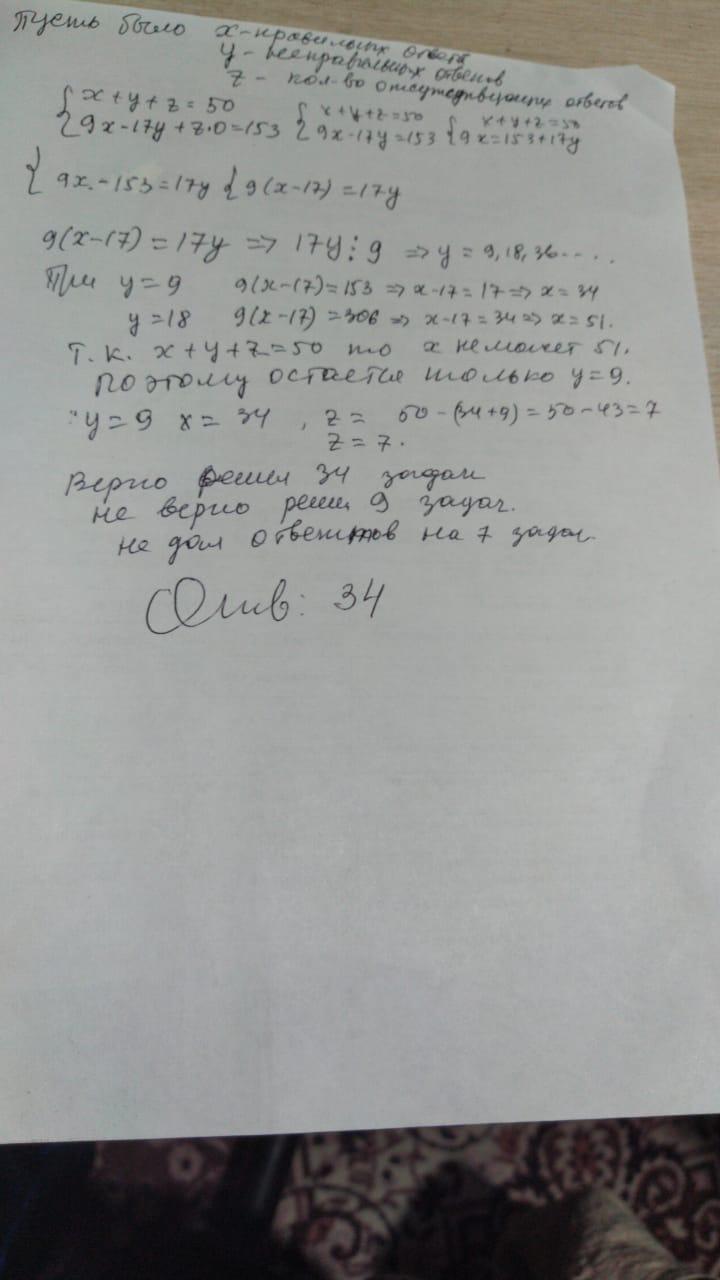 Пусть было x - правильных ответов
y - неправильных ответов
z - кол-во отсутствующих ответов
{ x + y + z = 50 { x + y + z = 50 { x + y + z = 50
9x - 17y + z·0 = 153 9x - 17y = 153 9x = 153 + 17y
{ 9x - 153 = 17y { 9(x - 17) = 17y
9(x - 17) = 17y => 17y ⋮ 9 => y = 9, 18, 36 .....
При y = 9 9(x - 17) = 153 => x - 17 = 17 => x = 34
y = 18 9(x - 17) = 306 => x - 17 = 34 => x = 51.
Т. к. x + y + z = 50 то x не может 51.
Поэтому остается только y = 9.
y = 9 x = 34 , z = 50 - (34 + 9) = 50 - 43 = 7
z = 7.
Верно решил 34 задач
не верно решил 9 задач.
не дал ответов на 7 задач.
Ответ: 34